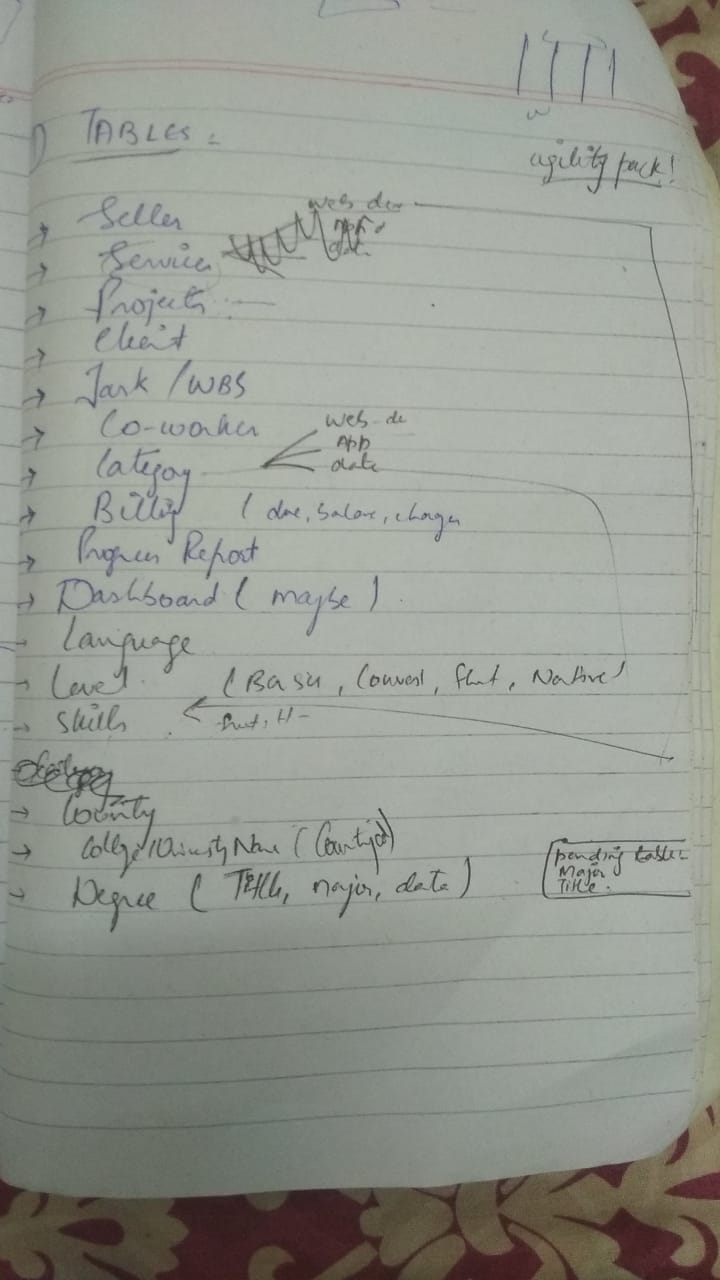 1) TABLES :
agility pack!
→ Seller
web dev
→ Service
→ Projects :—
→ Client
→ Task / WBS
→ Co-worker
web-de
App
→ Category
data
→ Billing ( due, balance, charges
→ Progress Report
→ Dashboard ( maybe ) .
→ Language
→ Level. ( Basic, Convers, flunt, Native )
→ Skills
→ County
→ College/University Name (
→ Degree ( Title, major, date )
pending table:
Major
Title.